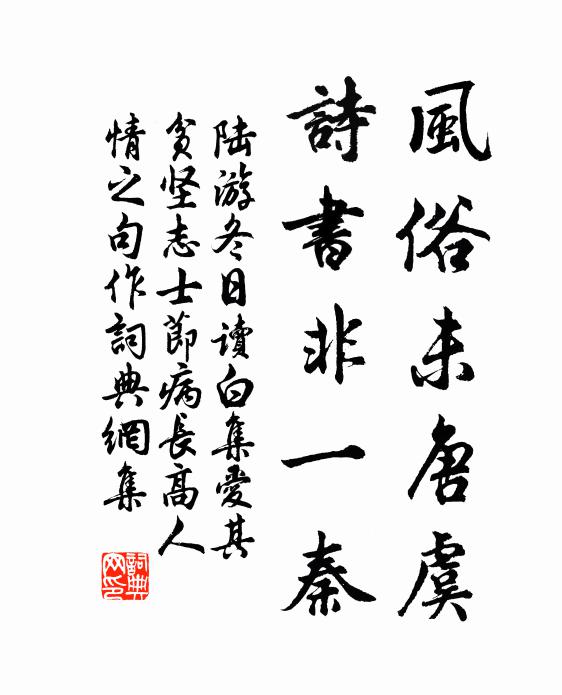 風俗未唐虞
詩書非一秦
陆游冬日讀白集愛其
貧坚志士節病長高人
情之句作詞典網集
詞典
网印